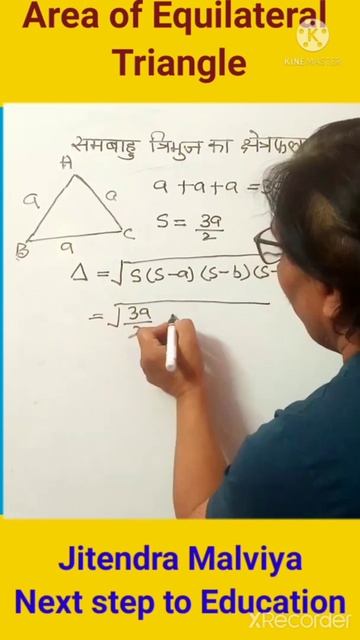 Area of Equilateral
Triangle
K
KINEMASTER
समबाहु त्रिभुज का क्षेत्रफल
A
a + a + a =
a a
S = 3a/2
B a C
Δ = √S(S-a)(S-b)(S-
= √3a/2
Jitendra Malviya
Next step to Education
XRecorder